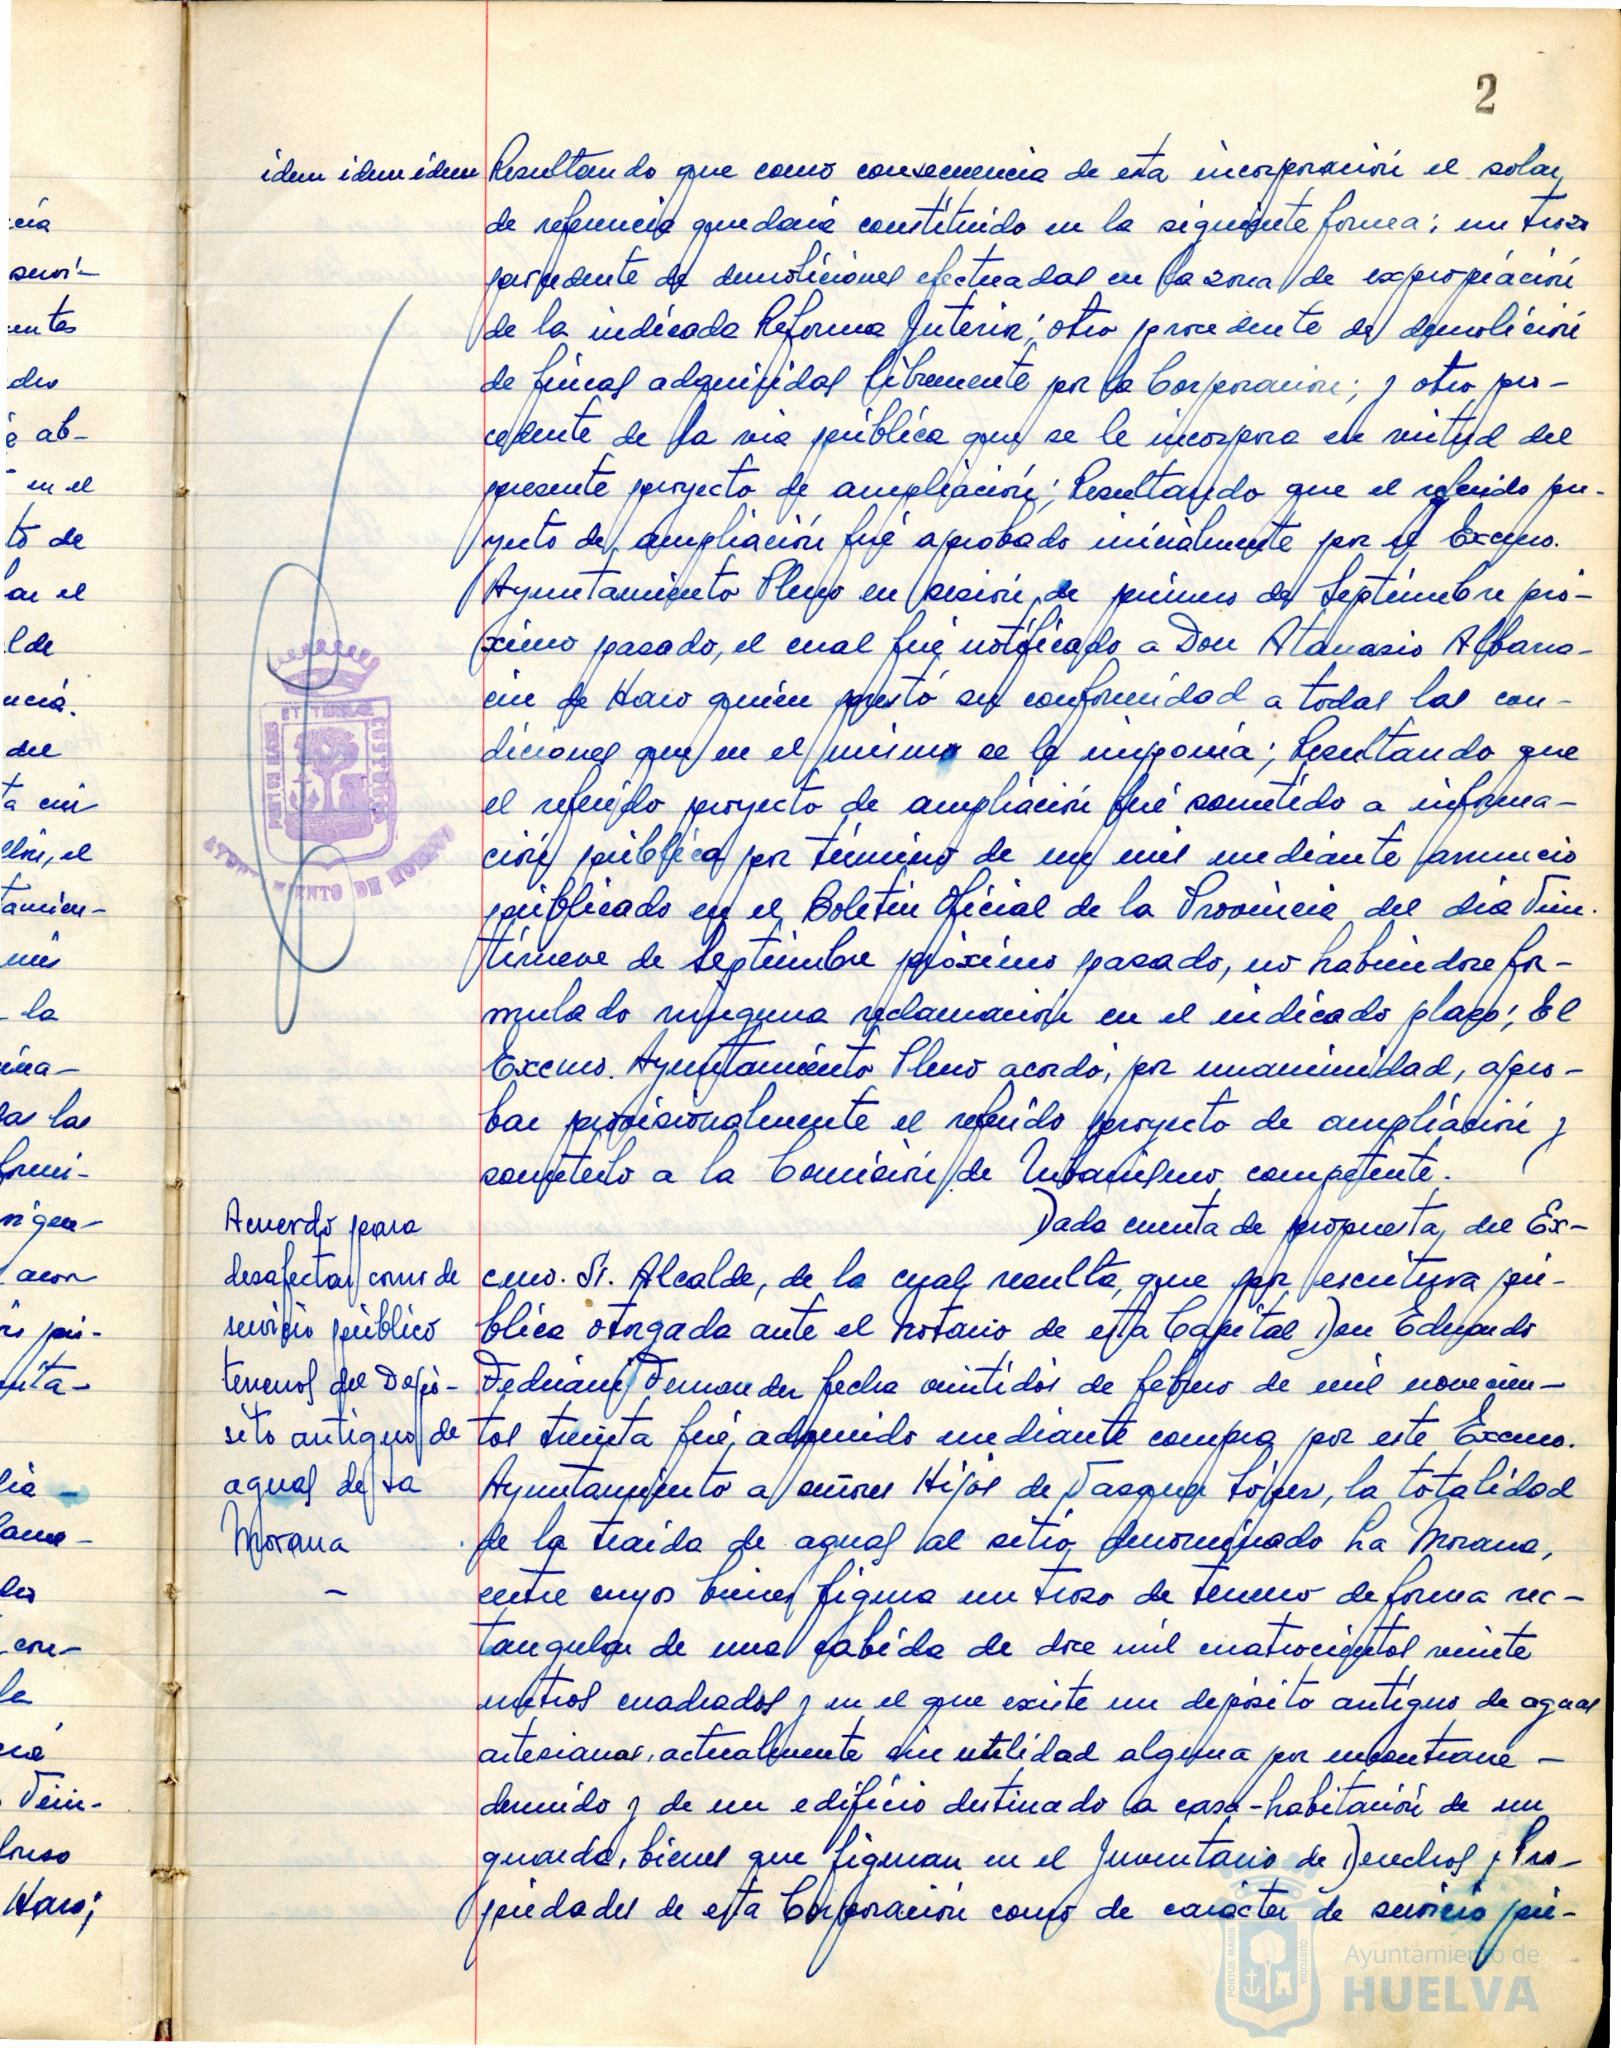 2
idem idem idem
Resultando que como consecuencia de esta incorporación el solar
de referencia quedaría constituido en la siguiente forma; un trozo
procedente de demoliciones efectuadas en la zona de expropiación
de la indicada Reforma Interior; otro procedente de demolición
de fincas adquiridas libremente por la Corporación; y otro pro-
cedente de la via pública que se le incorpora en virtud del
presente proyecto de ampliación; Resultando que el referido pro-
yecto de ampliación fué aprobado inicialmente por el Excmo.
Ayuntamiento Pleno en sesión de primero de Septiembre pró-
ximo pasado, el cual fué notificado a Don Atanasio Albarra-
cin de Haro quién prestó su conformidad a todas las con-
diciones que en el mismo se le imponía; Resultando que
el referido proyecto de ampliación fué sometido a informa-
ción pública por término de un mes mediante anuncio
publicado en el Boletín Oficial de la Provincia del dia Vein-
tinueve de Septiembre próximo pasado, no habiendose for-
mulado ninguna reclamación en el indicado plazo; El
Excmo. Ayuntamiento Pleno acordó, por unanimidad, apro-
bar provisionalmente el referido proyecto de ampliación y
someterlo a la Comisión de Urbanismo competente.
Acuerdo para
desafectar como de
servicio público
terrenos del Depó-
sito antiguo de
aguas de La
Morana
Dada cuenta de propuesta del Ex-
cmo. Sr. Alcalde, de la cual resulta, que por escritura pú-
blica otorgada ante el notario de esta Capital Don Eduardo
Fedriani Fernandez fecha veintidós de febrero de mil novecien-
tos treinta fué adquirido mediante compra por este Excmo.
Ayuntamiento a señores Hijos de Vazquez López, la totalidad
de la traida de aguas al sitio denominado La Morana,
entre cuyos bienes figura un trozo de terreno de forma rec-
tangular de una cabida de doce mil cuatrocientos veinte
metros cuadrados y en el que existe un depósito antiguo de aguas
artesianas, actualmente sin utilidad alguna por encontrarse
derruido y de un edificio destinado a casa-habitación de un
guarda, bienes que figuran en el Inventario de Derechos y Pro-
piedades de esta Corporación como de carácter de servicio pú-
PORTUS MARIS
ET TERRAE
CUSTODIA
AYUNTAMIENTO DE HUELVA
cia
servi-
entes
ab-
en el
to de
ar el
lde
ncia.
del
tamien-
la
las las
formi-
con-
la
Vein-
Haro;
PORTUS MARIS
CUSTODIA
Ayuntamiento de
HUELVA